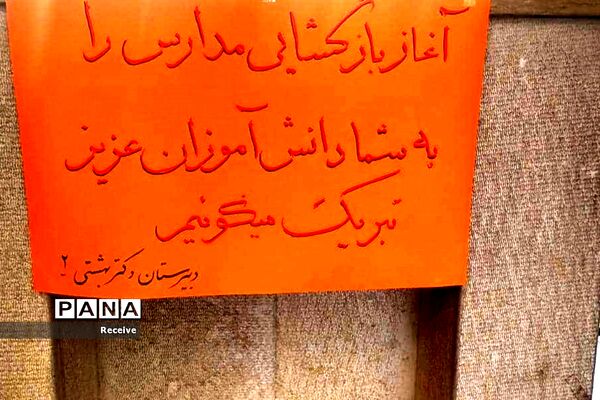 آغاز بازگشایی مدارس را
به شما دانش آموزان عزیز
تبریک میگوئیم
دبیرستان دکتر بهشتی ۲
PANA
Receive